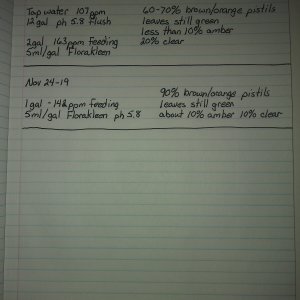 Tap water 107ppm 60-70% brown/orange pistils
12gal ph 5.8 flush leaves still green
less than 10% amber
2gal 163ppm feeding 20% clear
5ml/gal Florakleen
Nov 24-19
90% brown/orange pistils
1gal - 142ppm feeding leaves still green
5ml/gal Florakleen ph 5.8 about 10% amber 10% clear